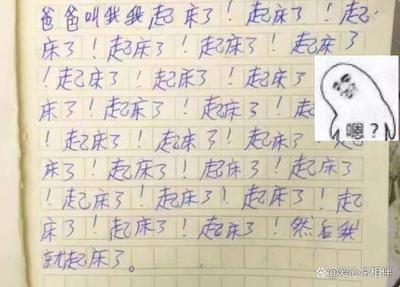 爸爸叫我我起床了！起床了！起
床了！起床了！起床了！起床了
！起床了！起床了！起床了
！起床了！起床了！起床了
！起床了！起床了！起床了！起
床了！起床了！起床了！起床了
！起床了！起床了！起床了！起
床了！起床了！起床了！然后我
就起床了。
嗯？
@爱心常相伴